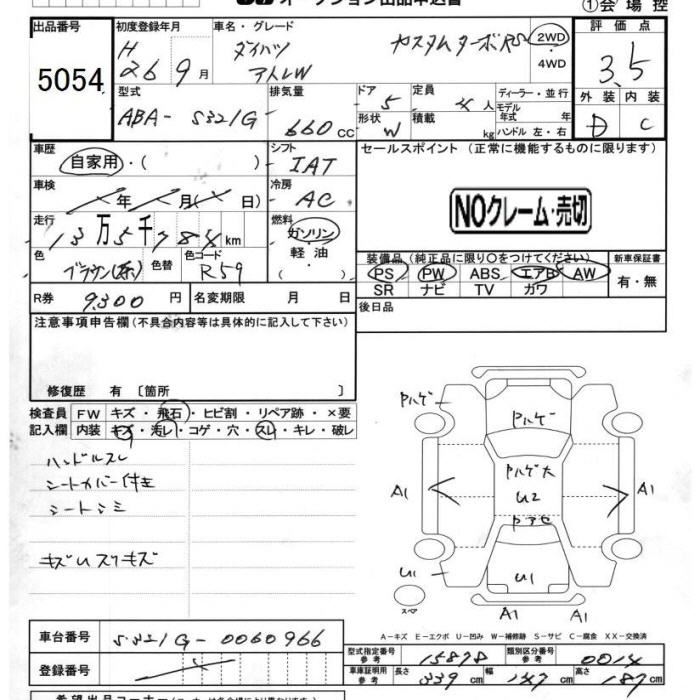 オークション出品申込書
①会場控
出品番号 初度登録年月 車名・グレード 評価点
5054 H 26 9月 ダイハツ カスタムターボRS 2WD 3.5
アトレW 4WD
型式 排気量 ドア 定員 ディーラー・並行 外装 内装
ABA- S321G- 660cc 5 4人 モデル年式 年 D C
形状 W 積載 kg ハンドル 左・右
車歴 シフト セールスポイント (正常に機能するものに限ります)
自家用・( ) IAT
車検 冷房 NOクレーム・売切
年 月( 日) AC
走行 燃料
13万5千784km ガソリン
色 色替 色コード 軽油・ 装備品(純正品に限り○をつけてください) 新車保証書
ブラウン(茶) R59 ( ) PS PW ABS エアB AW 有・無
SR ナビ TV カワ
R券 9,300円 名変期限 月 日 後日品
注意事項申告欄(不具合内容等は具体的に記入して下さい)
修復歴 有 〔箇所 〕
検査員 FW キズ・飛石・ヒビ割・リペア跡・×要
記入欄 内装 キズ・汚レ・コゲ・穴・スレ・キレ・破レ
ハンドルスレ
シートカバー付き
シートシミ
キズUスリキズ
Pハゲ
Pハゲ
Pハゲ大
A1 U2 A1
Pアセ
U1 U1
スペア A1 A1
A-キズ E-エクボ U-凹み W-補修跡 S-サビ C-腐食 XX-交換済
車台番号 S321G-0060966
型式指定番号 参考 15878 類別区分番号 参考 0014
登録番号
車庫証明用 参考 長さ 339cm 幅 147cm 高さ 187cm
希望出品コーナー